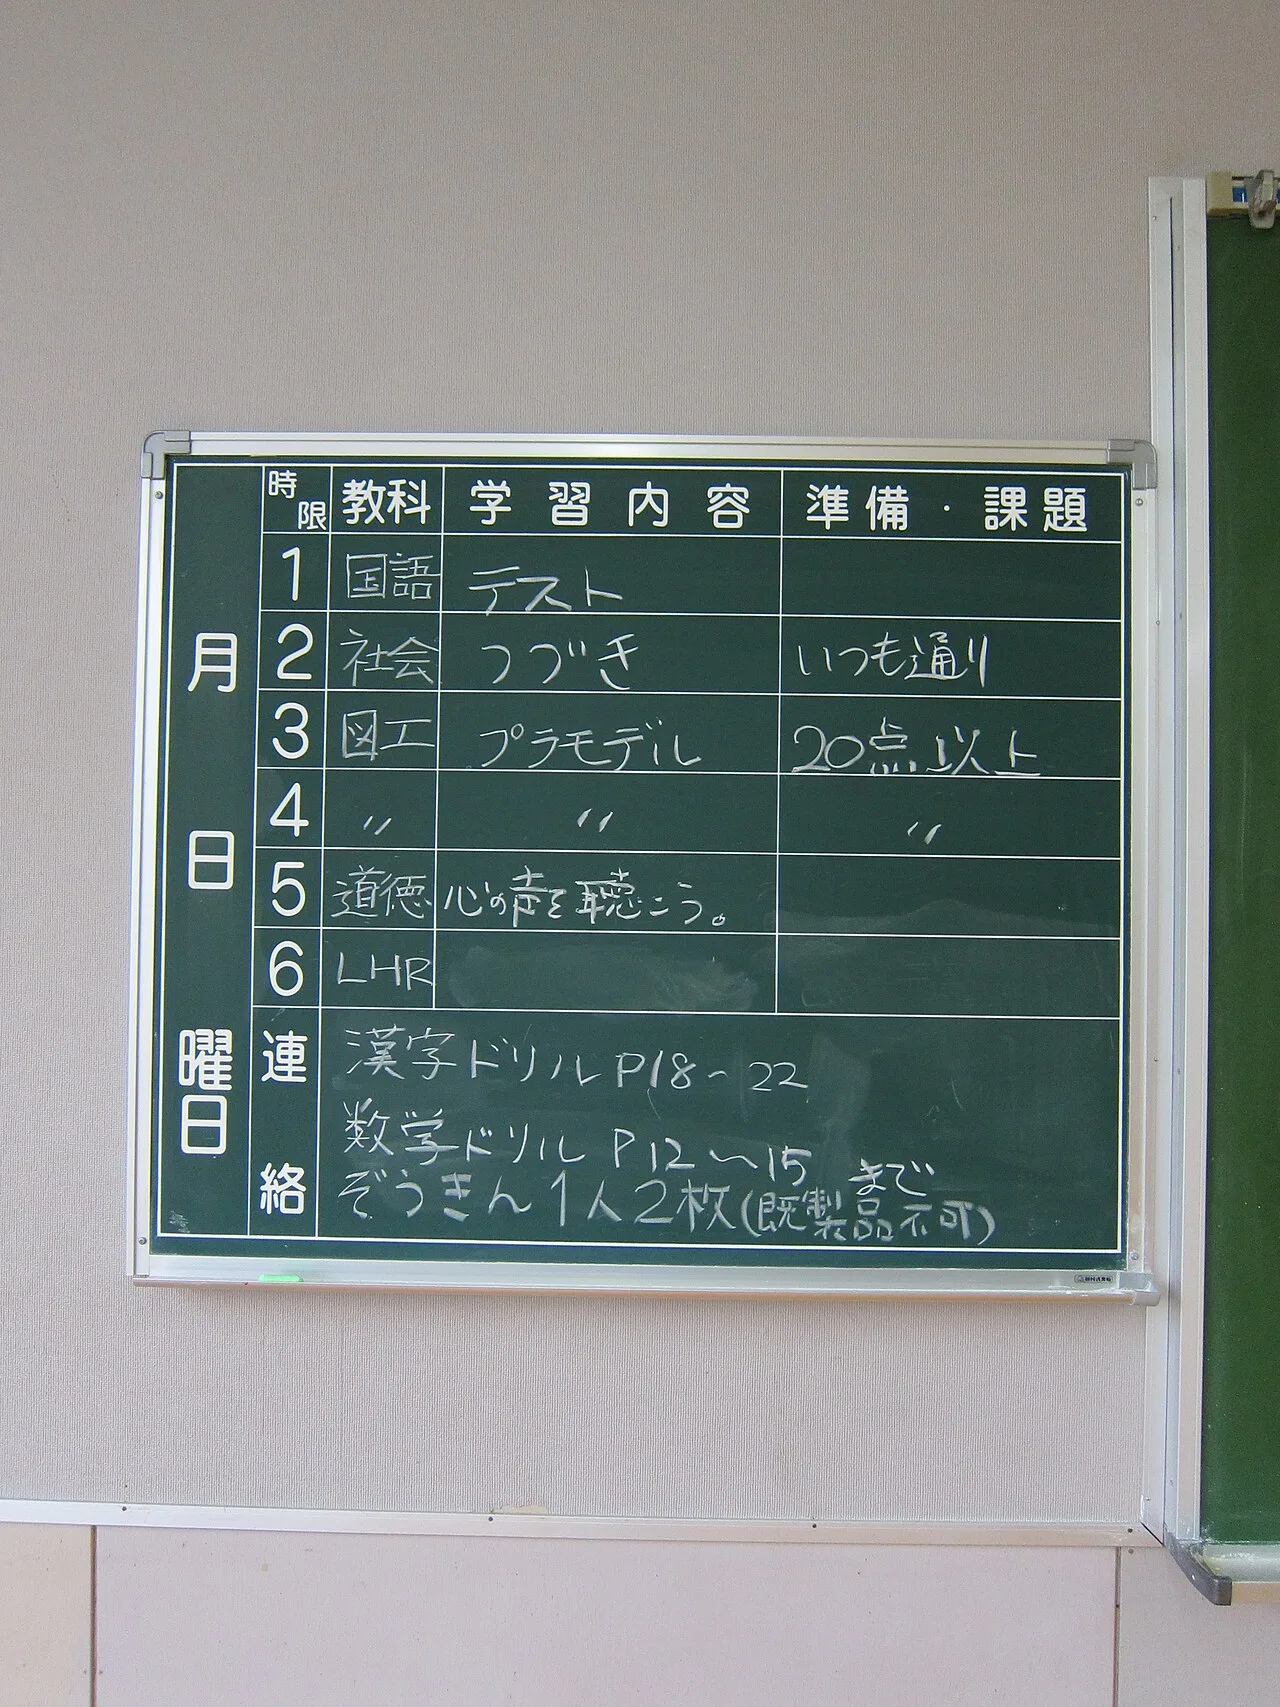 月 日 曜日
時限 教科 学習内容 準備・課題
1 国語 テスト
2 社会 つづき いつも通り
3 図工 プラモデル 20点以上
4 〃 〃 〃
5 道徳 心の声を聴こう。
6 LHR
連絡
漢字ドリル P18~22
数学ドリル P12~15まで
ぞうきん1人2枚(既製品不可)